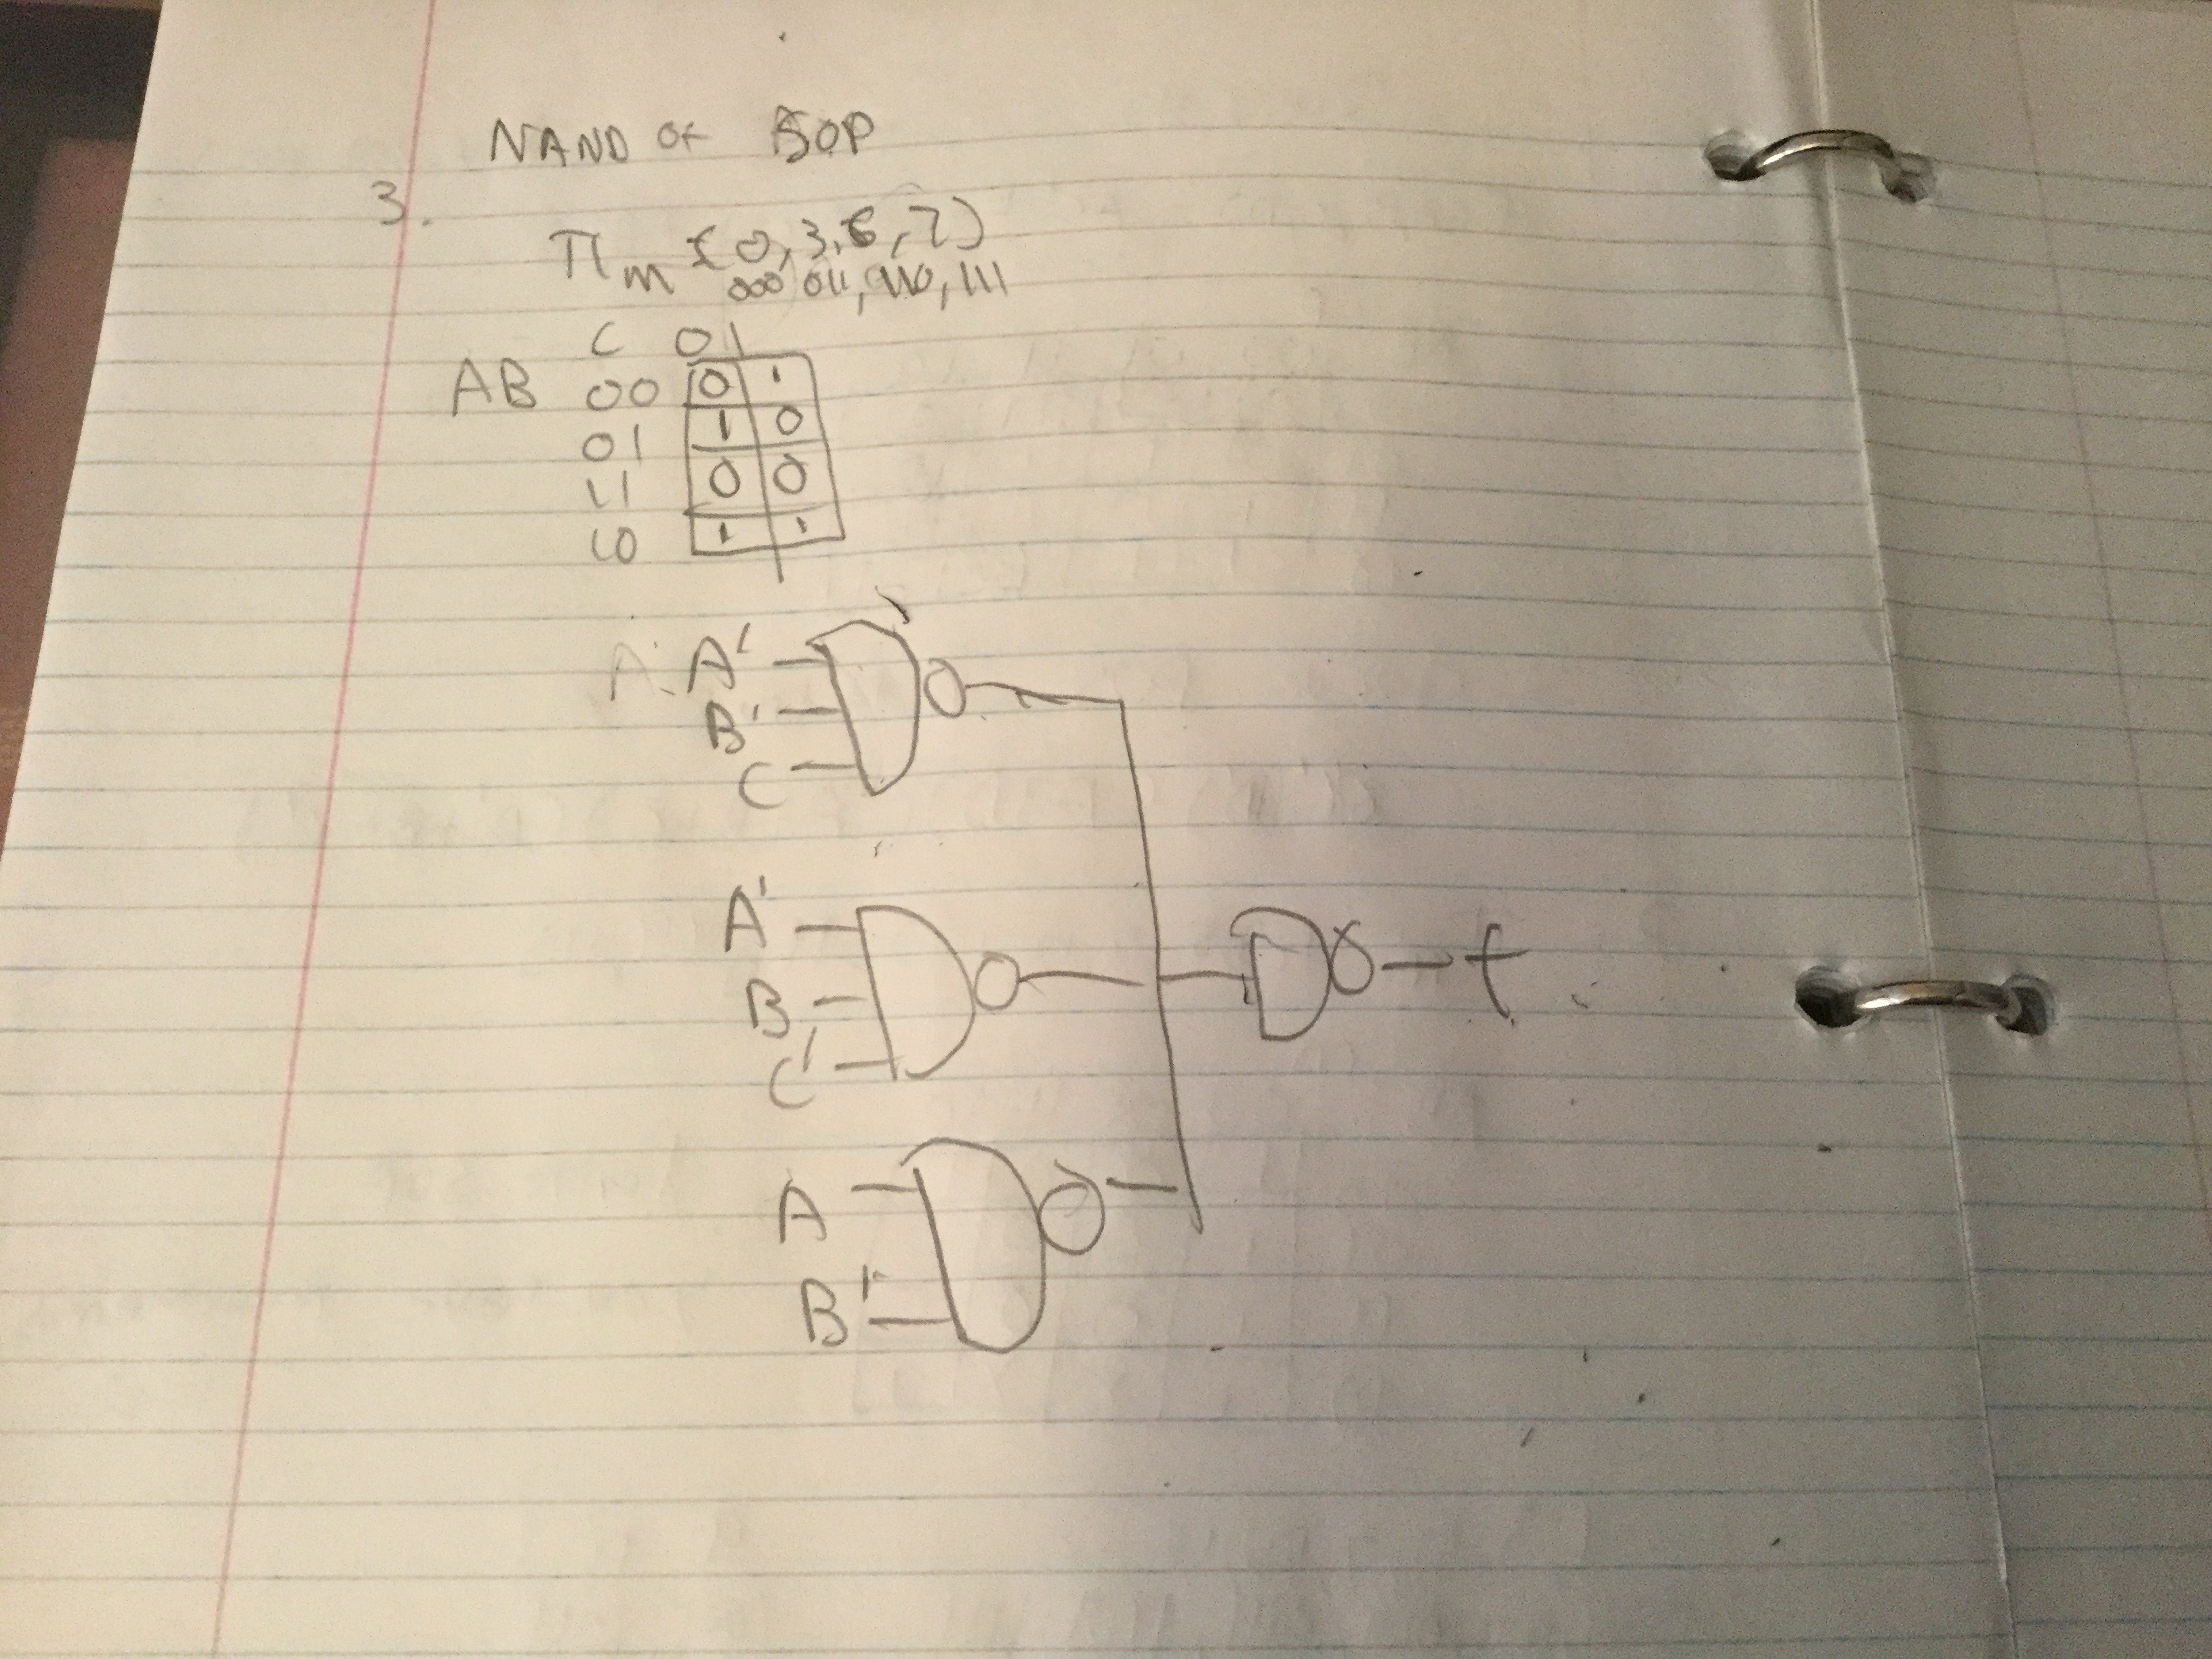 NAND OF SOP
3.
πm (0, 3, 6, 7)
000 011, 110, 111
C 0 1
AB 00 0 1
01 1 0
11 0 0
10 1 1
A A'
B'
C
A'
B
C'
f
A
B'